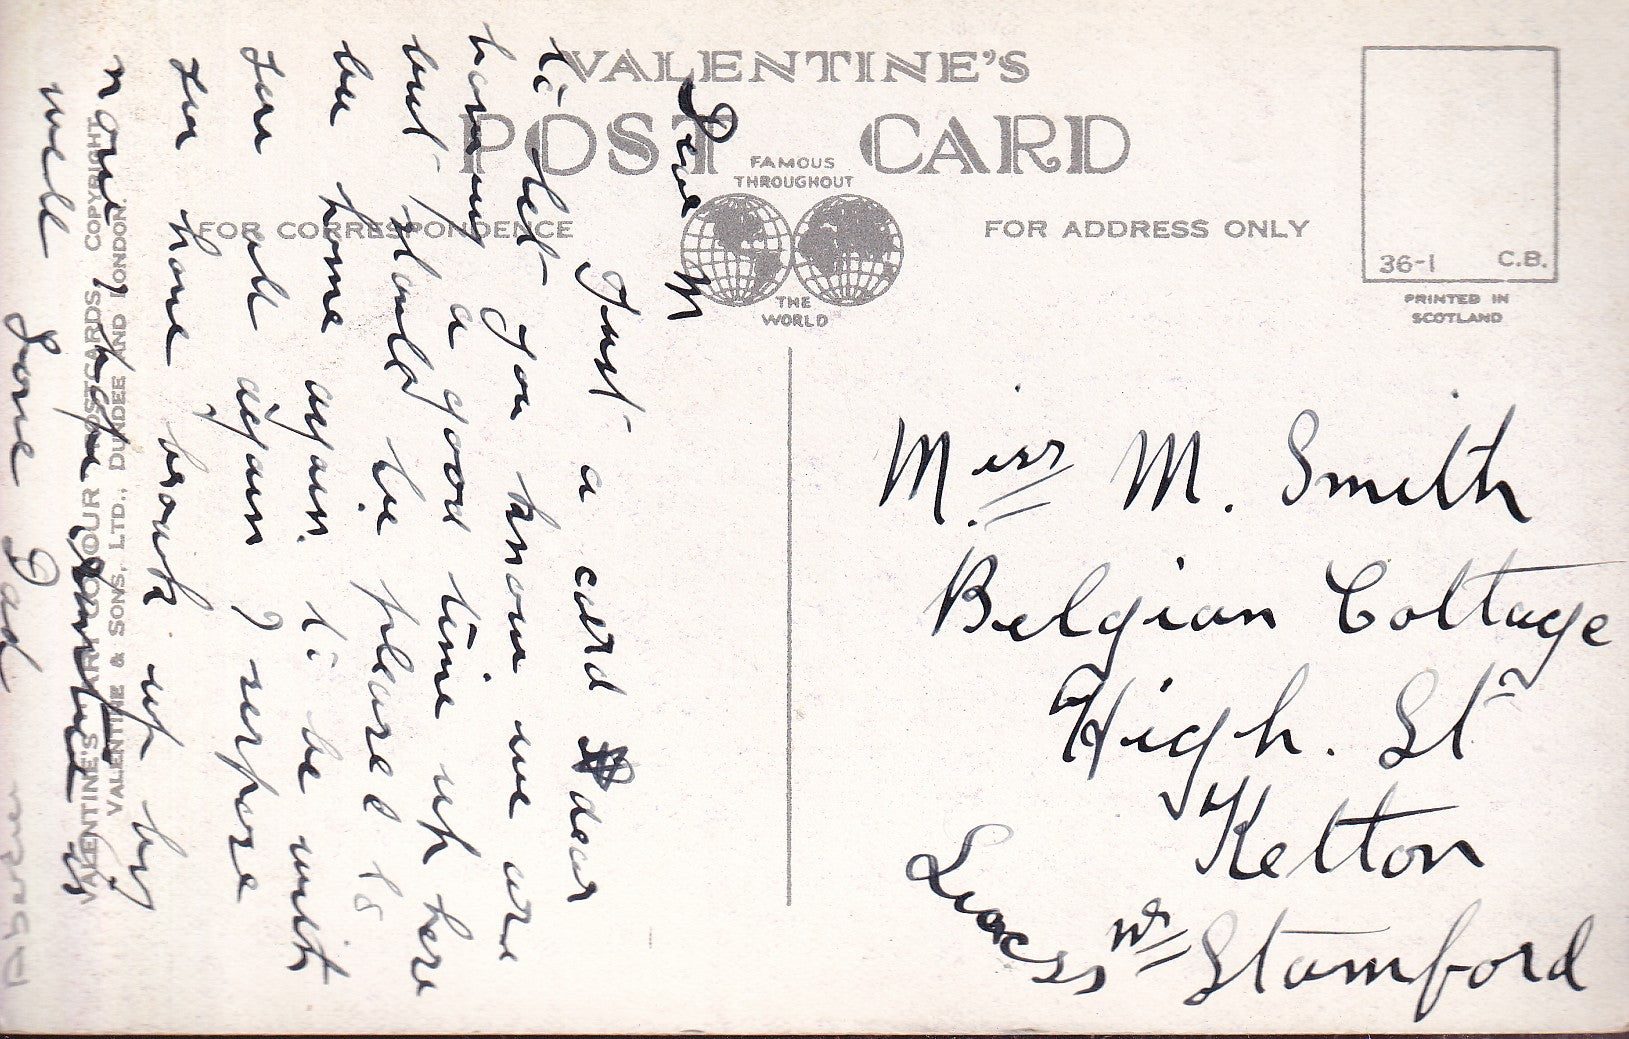 VALENTINE'S
POST CARD
FAMOUS
THROUGHOUT
THE
WORLD
FOR CORRESPONDENCE
FOR ADDRESS ONLY
36-1 C.B.
PRINTED IN
SCOTLAND
Dear M
Just a card dear
to let you know we are
having a good time up here
but should be pleased to
be home again. to be with
you all again I serpose
you have brouk up by
now, hope is
well Love Dad
Miss M. Smith
Belgian Cottage
High. St
Ketton
Nr Stamford
VALENTINE'S POSTCARDS COPYRIGHT
VALENTINE & SONS, LTD., DUNDEE AND LONDON.